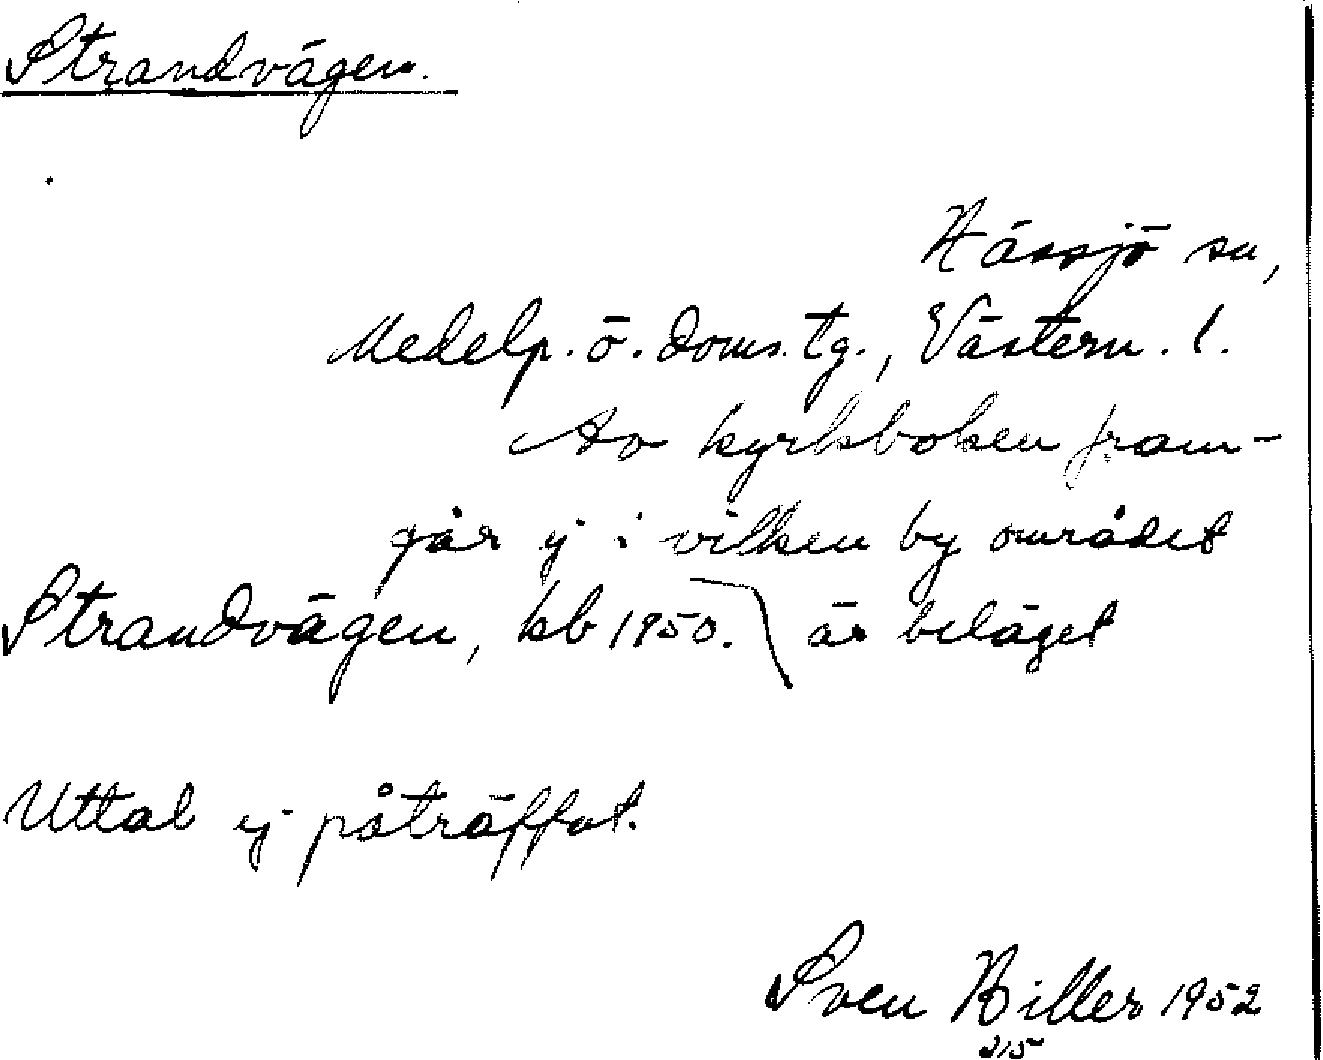 Strandvägen.
Hässjö sn,
Medelp. ö. doms. tg., Västern. l.
Av kyrkboken fram-
går ej i vilken by området
Strandvägen, kb 1950. är beläget
Uttal ej påträffat.
Sven Hiller 1952